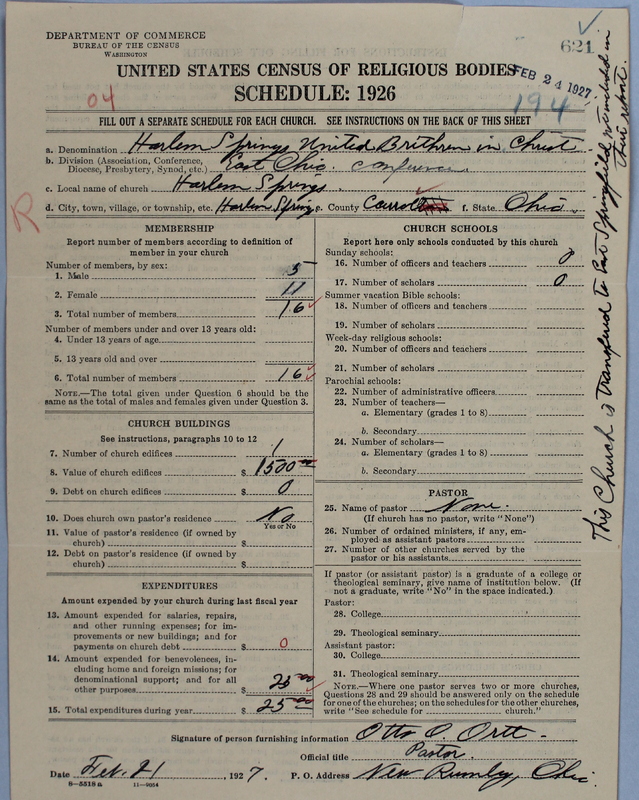 DEPARTMENT OF COMMERCE
BUREAU OF THE CENSUS
WASHINGTON
621
FEB 24 1927
194
UNITED STATES CENSUS OF RELIGIOUS BODIES
SCHEDULE: 1926
04
FILL OUT A SEPARATE SCHEDULE FOR EACH CHURCH. SEE INSTRUCTIONS ON THE BACK OF THIS SHEET
a. Denomination Harlem Springs United Brithren in Christ
b. Division (Association, Conference, Diocese, Presbytery, Synod, etc.) East Ohio. conference
c. Local name of church Harlem Springs.
d. City, town, village, or township, etc. Harlem Springs e. County Carroll f. State Ohio.
R
MEMBERSHIP
Report number of members according to definition of
member in your church
Number of members, by sex:
1. Male 5
2. Female 11
3. Total number of members 16
Number of members under and over 13 years old:
4. Under 13 years of age
5. 13 years old and over
6. Total number of members 16
NOTE.—The total given under Question 6 should be
same as the total of males and females given under Question 3.
CHURCH BUILDINGS
See instructions, paragraphs 10 to 12
7. Number of church edifices 1
8. Value of church edifices $ 1500 00
9. Debt on church edifices $ 0
10. Does church own pastor's residence No
Yes or No
11. Value of pastor's residence (if owned by
church) $
12. Debt on pastor's residence (if owned by
church) $
EXPENDITURES
Amount expended by your church during last fiscal year
13. Amount expended for salaries, repairs,
and other running expenses; for im-
provements or new buildings; and for
payments on church debt $ 0
14. Amount expended for benevolences, in-
cluding home and foreign missions; for
denominational support; and for all
other purposes $ 25 00
15. Total expenditures during year $ 25 00
CHURCH SCHOOLS
Report here only schools conducted by this church
Sunday schools:
16. Number of officers and teachers 0
17. Number of scholars 0
Summer vacation Bible schools:
18. Number of officers and teachers
19. Number of scholars
Week-day religious schools:
20. Number of officers and teachers
21. Number of scholars
Parochial schools:
22. Number of administrative officers
23. Number of teachers—
a. Elementary (grades 1 to 8)
b. Secondary
24. Number of scholars—
a. Elementary (grades 1 to 8)
b. Secondary
PASTOR
25. Name of pastor None.
(If church has no pastor, write "None")
26. Number of ordained ministers, if any, em-
ployed as assistant pastors
27. Number of other churches served by the
pastor or his assistants
If pastor (or assistant pastor) is a graduate of a college or
theological seminary, give name of institution below. (If
not a graduate, write "No" in the space indicated.)
Pastor:
28. College
29. Theological seminary
Assistant pastor:
30. College
31. Theological seminary
NOTE.—Where one pastor serves two or more churches,
Questions 28 and 29 should be answered only on the schedule
for one of the churches; on the schedules for the other churches,
write "See schedule for church."
Signature of person furnishing information Otto O. Ortt
Official title Pastor.
Date Feb. 21, 1927. P. O. Address New Rumley, Ohio.
8—5518a 11—9054
This Church is transferred to East Springfield, not included in
this report.